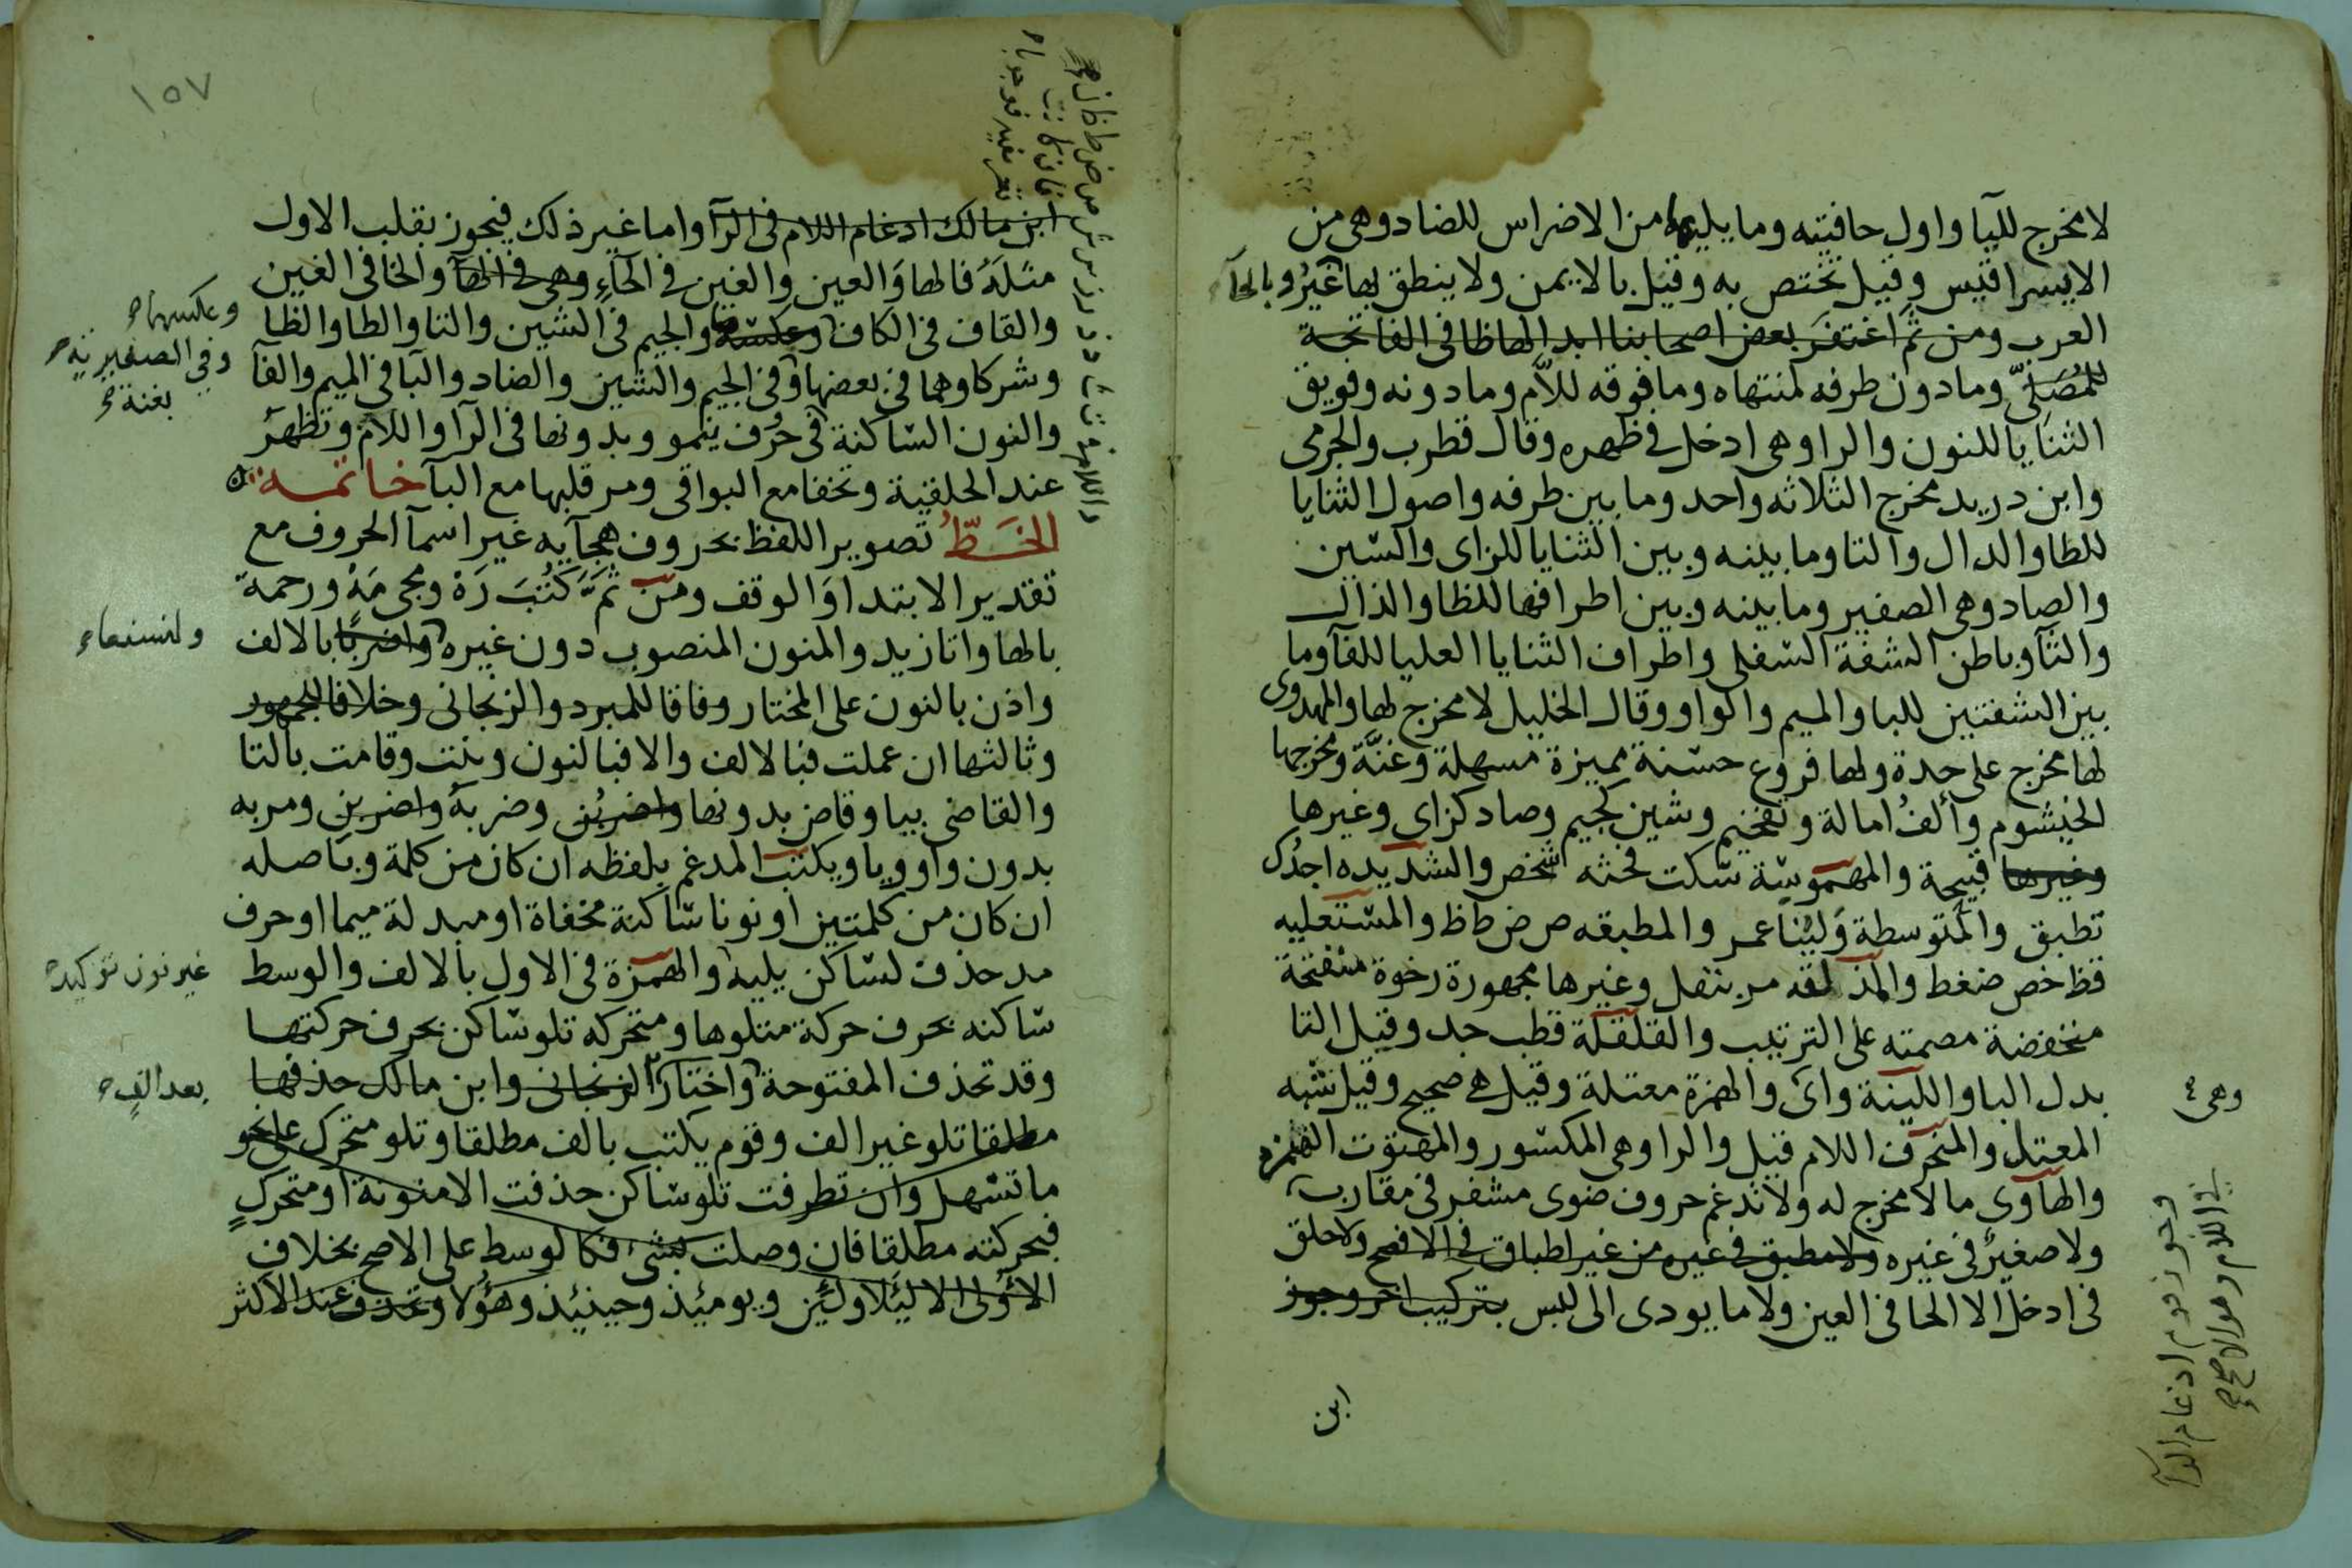 لا مخرج لليا واول حافيته وما يليها من الاضراس للضاد وهى من
الايسر اقيس وقيل تختص به وقيل بالايمن ولا ينطق بها غير
العرب ومن ثم اغتفر بعض اصحابنا ابدالها ظا فى الفاتحة
للمصلى وما دون طرفه لمنتهاه وما فوقه للام وما دونه وفويق
الثنايا للنون والرا وهى ادخل فى ظهره وقال قطرب والجرمى
وابن دريد مخرج الثلاثه واحد وما بين طرفه واصول الثنايا
للطا والدال والتا وما بينه وبين الثنايا للزاى والسين
والصاد وهى الصفير وما بينه وبين اطرافها للظا والذال
والثآ وباطن الشفة السفلى واطراف الثنايا العليا للفآ وما
بين الشفتين للبا والميم والواو وقال الخليل لا مخرج لها والمهدوى
لها مخرج على حدة ولها فروع حسنة مميزة مسهلة وغنة ومخرجها
الخيشوم وألف امالة وتفخيم وشين كجيم وصاد كزاى وغيرها
وغيرها قبيحة والمهموسة سكت فحثه شخص والشديده اجدك
تطبق والمتوسطة وليُنا عمر والمطبقه ص ض ط ظ والمستعليه
قظ خص ضغط والمذلقه مر بنفل وغيرها مجهورة رخوة منفتحة
منخفضة مصمته على الترتيب والقلقلة قطب جد وقيل التا
بدل البا واللينة واى والهمزة معتلة وقيل هى صحيح وقيل شبه
المعتل والمنحرف اللام قيل والرا وهى المكسور والمهتوت الهمزه
والهاوى ما لا مخرج له ولا تدغم حروف ضوى مشفر فى مقارب
ولا صفير فى غيره ولا مطبق فى غيره من غير اطباق فى الافصح ولا حلق
فى ادخل الا الحا فى العين ولا ما يودى الى لبس بتركيب اخر وجوز
ابن
وهى
وجوز قوم ادغام الرآ
فى اللام وهو الاصح
١٥٧
ابن مالك ادغام اللام فى الرآ واما غير ذلك فيجوز بقلب الاول
مثله فالها والعين والغين فى الحاء وهى فى الهآ والخا فى الغين
والقاف فى الكاف وعكسه والجيم فى الشين والتا والطا والظا
وشركاوهما فى بعضها وفى الجيم والشين والضاد والبا فى الميم والفآ
والنون الساكنة فى حرف ينمو وبدونها فى الرآ واللام وتظهر
عند الحلقية وتخفا مع البواقى ومر قلبها مع البآ خاتمة
الخط تصوير اللفظ بحروف هجآيه غير اسمآ الحروف مع
تقدير الابتدا والوقف ومن ثم كتب ره ومجى مه ورحمة
بالها وانا زيد والمنون المنصوب دون غيره واضربًا بالالف
واذن بالنون على المختار وفاقا للمبرد والزنجانى وخلافا للجمهور
وثالثها ان عملت فبالالف والا فبالنون وبنت وقامت بالتا
والقاضى بيا وقاض بدونها واضربُن وضربهُ واضربن ومربه
بدون واو ويا ويكتب المدغم بلفظه ان كان من كلمة وباصله
ان كان من كلمتين او نونا ساكنة مخفاة او مبدلة ميما او حرف
مد حذف لساكن يليه والهمزة فى الاول بالالف والوسط
ساكنه بحرف حركة متلوها ومتحركه تلو ساكن بحرف حركتها
وقد تحذف المفتوحة واختار الزنجانى وابن مالك حذفها
مطلقا تلو غير الف وقوم يكتب بالف مطلقا وتلو متحرك على نحو
ما تسهل وان تطرفت تلو ساكن حذفت الا منونة او متحرك
فبحركته مطلقا فان وصلت بشئ فكالوسط على الاصح بخلاف
الأولى الا لئلا ولئن ويومئذ وحينئذ وهؤلا وتحذف عند الاكثر
وعكسهما
وفى الصفيرية
بغنة
ولنسفعا
غير نون توكيد
بعد الف